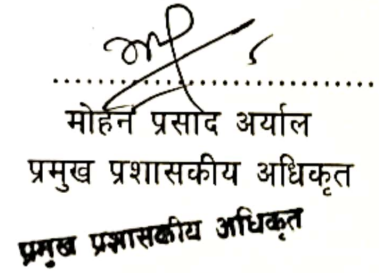 मोहन प्रसाद अर्याल
प्रमुख प्रशासकीय अधिकृत
प्रमुख प्रशासकीय अधिकृत